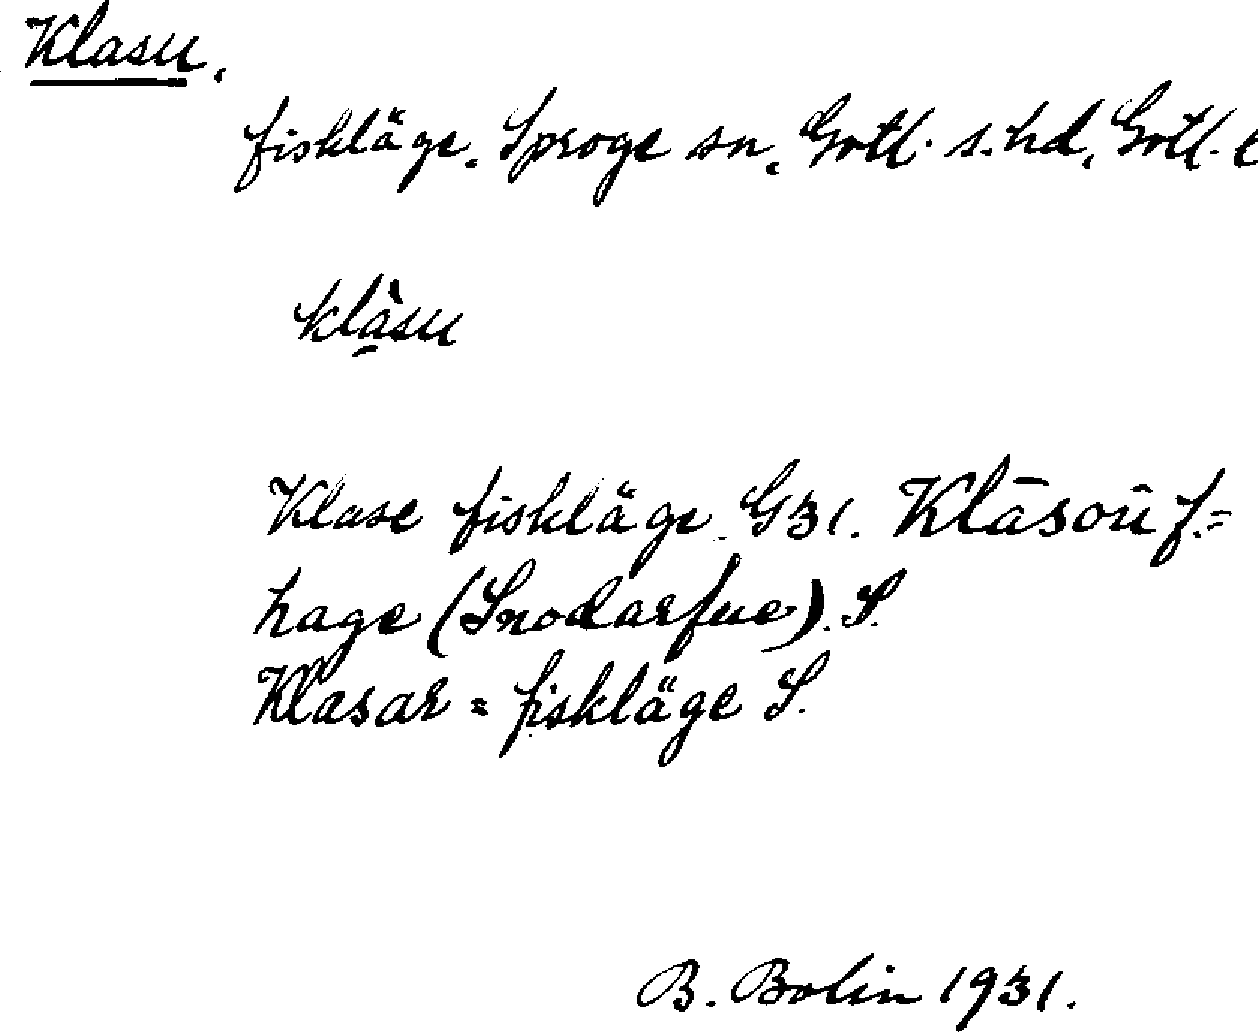 Klasu.
fiskläge. Sproge sn. Gotl. s. hd, Gotl. l
klàsu
Klase fiskläge. G31. Klāsoū f.=
hage (Snodarfue). S.
Klasar = fiskläge S.
B. Bolin 1931.